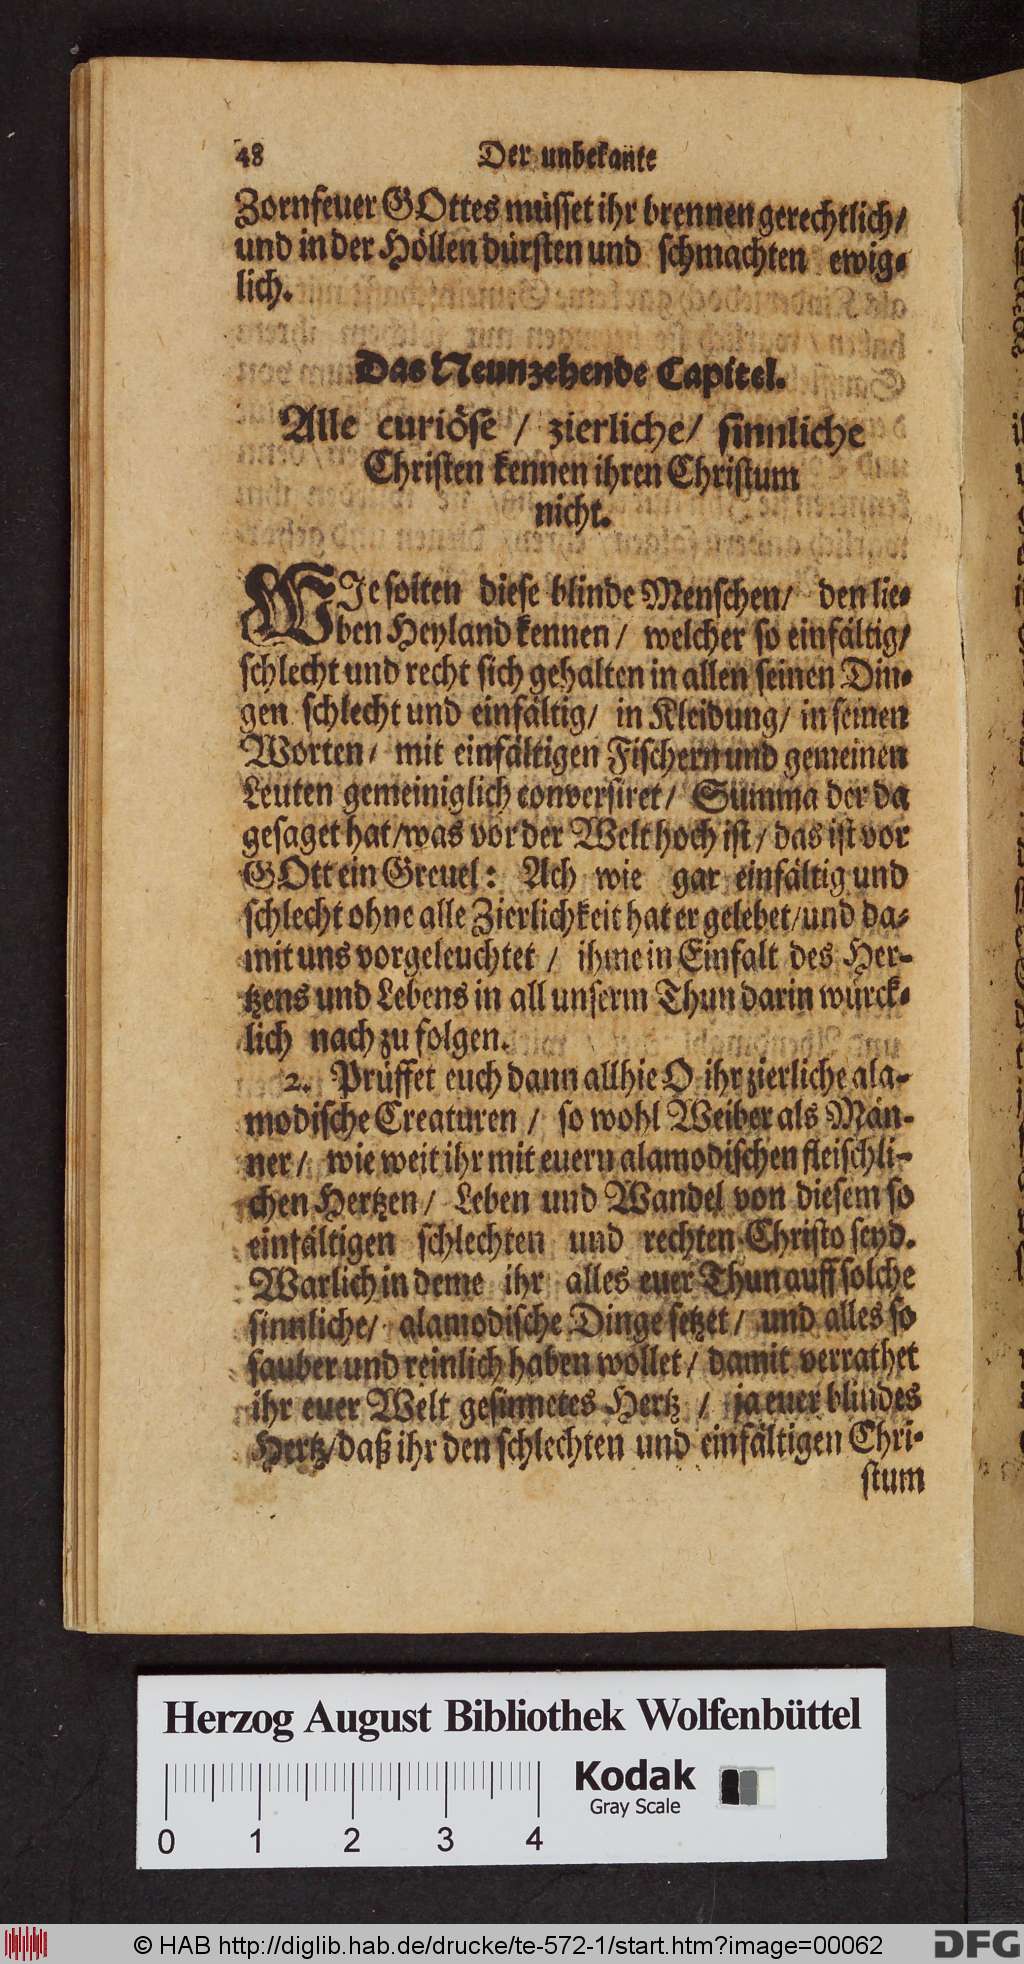 48 Der unbekante
Zornfeuer GOttes müsset ihr brennen gerechtlich/
und in der Höllen dürsten und schmachten ewig-
lich.
Das Neunzehende Capitel.
Alle curiöse / zierliche/ sinnliche
Christen kennen ihren Christum
nicht.
WIe solten diese blinde Menschen/ den lie-
ben Heyland kennen / welcher so einfältig/
schlecht und recht sich gehalten in allen seinen Din-
gen schlecht und einfältig/ in Kleidung/ in seinen
Worten/ mit einfältigen Fischern und gemeinen
Leuten gemeiniglich conversiret/ Summa der da
gesaget hat/was vor der Welt hoch ist/ das ist vor
GOtt ein Greuel: Ach wie gar einfältig und
schlecht ohne alle Zierlichkeit hat er gelebet/und da-
mit uns vorgeleuchtet / ihme in Einfalt des Her-
tzens und Lebens in all unserm Thun darin würck-
lich nach zu folgen.
2. Prüffet euch dann allhie O ihr zierliche ala-
modische Creaturen / so wohl Weiber als Män-
ner/ wie weit ihr mit euern alamodischen fleischli-
chen Hertzen/ Leben und Wandel von diesem so
einfältigen schlechten und rechten Christo seyd.
Warlich in deme ihr alles euer Thun auff solche
sinnliche/ alamodische Dinge setzet/ und alles so
sauber und reinlich haben wollet/ damit verrathet
ihr euer Welt gesinnetes Hertz / ja euer blindes
Hertz/daß ihr den schlechten und einfältigen Chri-
stum
Herzog August Bibliothek Wolfenbüttel
Kodak
Gray Scale
0 1 2 3 4
© HAB http://diglib.hab.de/drucke/te-572-1/start.htm?image=00062
DFG